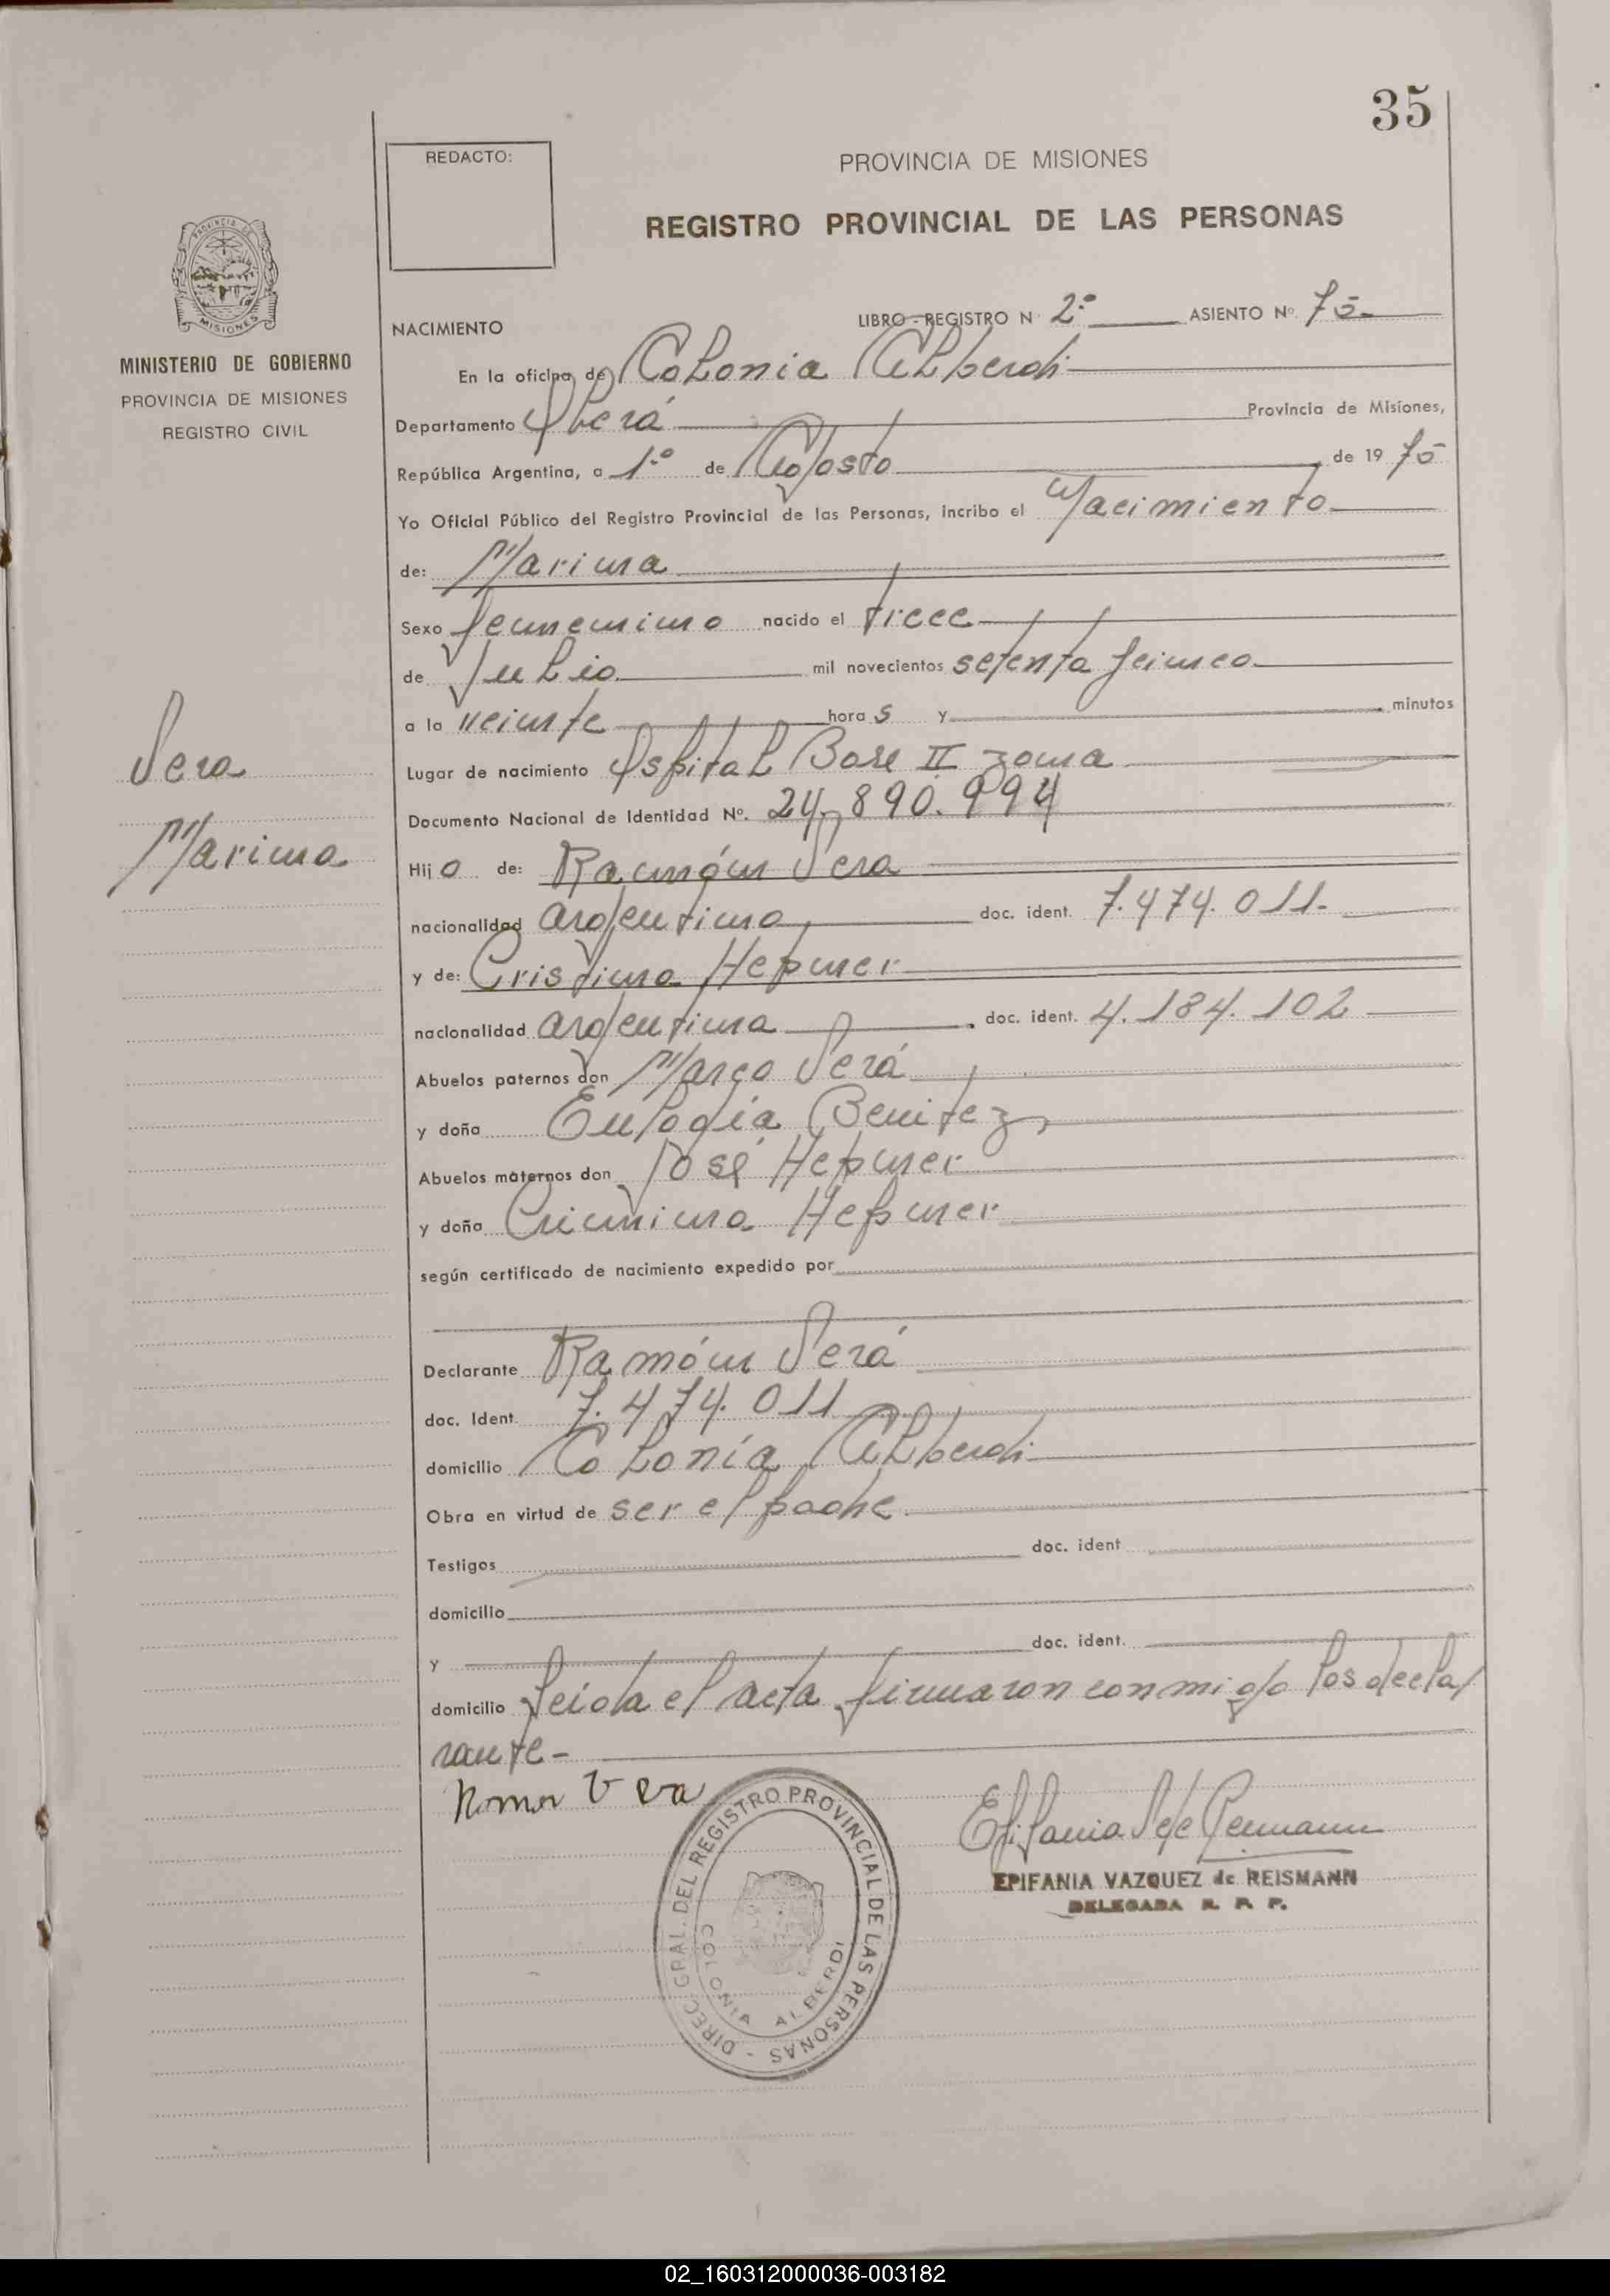 35
REDACTO:
PROVINCIA DE MISIONES
REGISTRO PROVINCIAL DE LAS PERSONAS
MISIONES
MINISTERIO DE GOBIERNO
PROVINCIA DE MISIONES
REGISTRO CIVIL
NACIMIENTO
LIBRO-REGISTRO N 2º ASIENTO Nº 75-
En la oficina de Colonia Alberdi
Departamento Oberá Provincia de Misiones,
República Argentina, a 1º de Agosto de 19 75
Yo Oficial Público del Registro Provincial de las Personas, incribo el Nacimiento
de: Marina
Sexo femenino nacido el trece
de Julio mil novecientos setenta y cinco
a la veinte hora s y minutos
Lugar de nacimiento Ospital Base II zona
Documento Nacional de Identidad Nº. 24.890.994
Sera
Marina
Hij a de: Ramón Sera
nacionalidad argentino doc. ident. 7.474.011-
y de: Cristina Hepner
nacionalidad argentina doc. ident. 4.184.102
Abuelos paternos don Março Será
y doña Eulogia Benitez
Abuelos maternos don José Hepner
y doña Hepner
según certificado de nacimiento expedido por
Declarante Ramón Será
doc. Ident 7.474.011
domicilio Colonia Alberdi
Obra en virtud de ser el padre
Testigos doc. ident
domicilio
y doc. ident.
domicilio Leida el acta firmaron conmigo los decla
rante-
EPIFANIA VAZQUEZ de REISMANN
DELEGADA R. P. P.
DIREC. GRAL. DEL REGISTRO PROVINCIAL DE LAS PERSONAS -
COLONIA ALBERDI
02_160312000036-003182